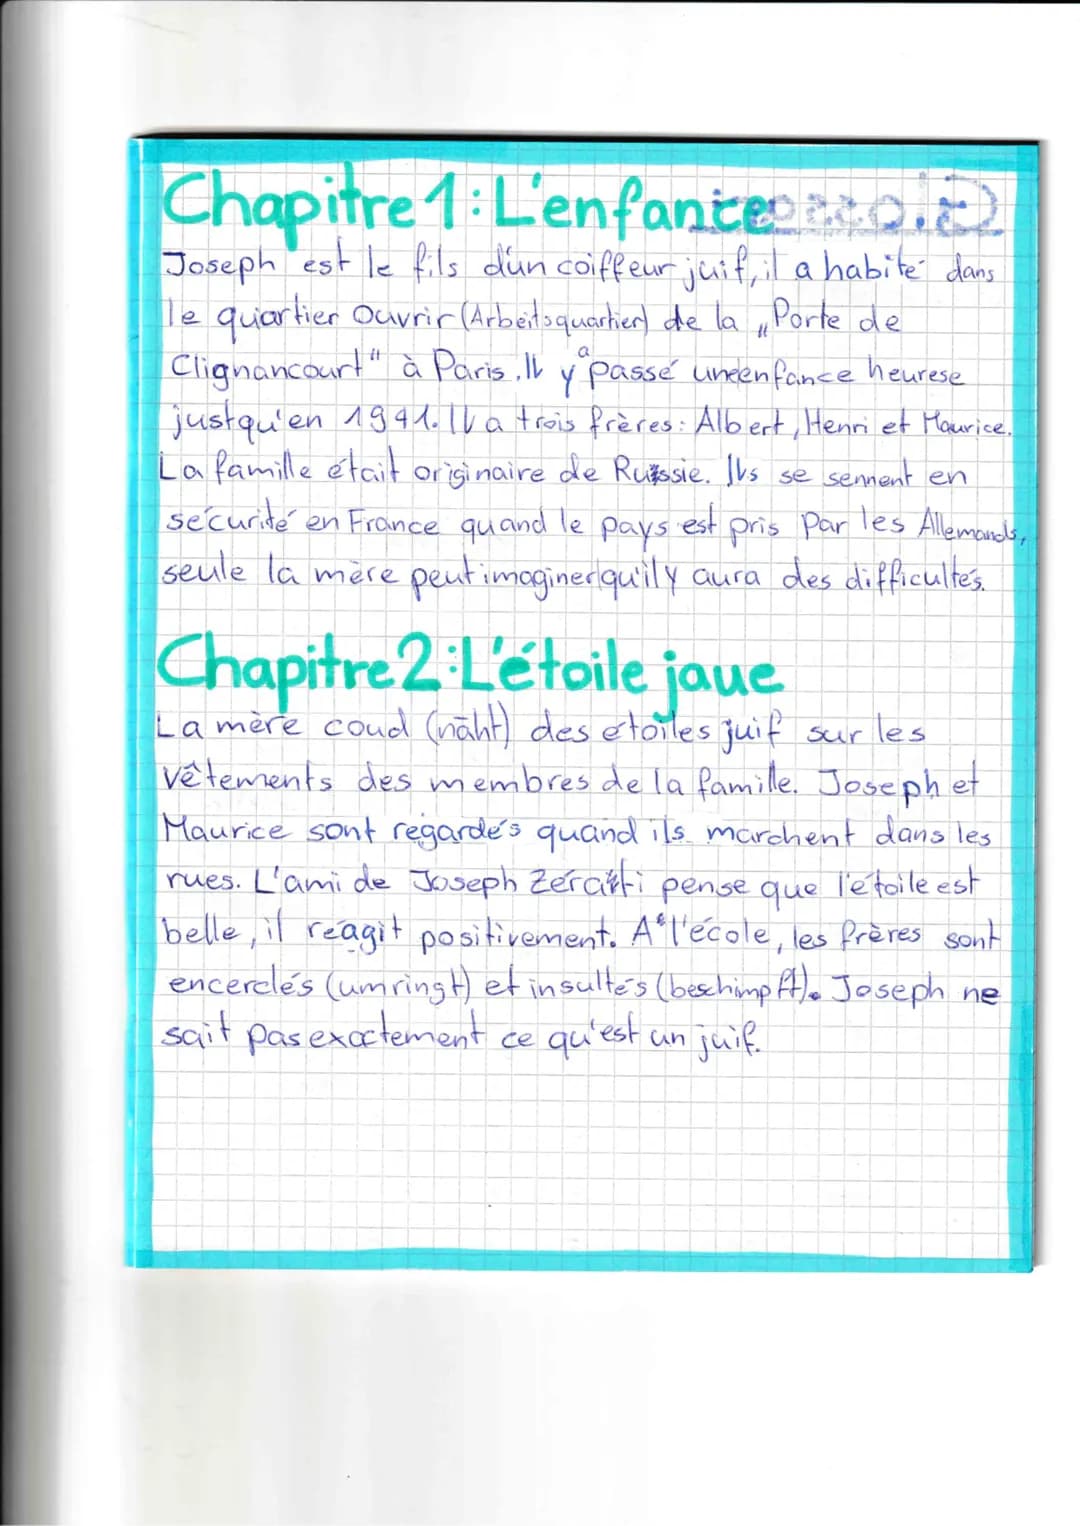 Chapitre 1: L'enfance
Joseph est le fils d'un coiffeur juif, il a habité dans
le quartier Ouvrir (Arbeitsquartier) de la „Porte de
Clignancourt" à Paris. Il y a passé une enfance heurese
justqu'en 1941. Il a trois frères: Albert, Henri et Maurice.
La famille était originaire de Russie. Ils se sennent en
sécurité en France quand le pays est pris par les Allemands,
seule la mère peut imaginer qu'il y aura des difficultés.
Chapitre 2: L'étoile jaue
La mère coud (näht) des étoiles juif sur les
vêtements des membres de la famille. Joseph et
Maurice sont regardés quand ils marchent dans les
rues. L'ami de Joseph Zérati pense que l'étoile est
belle, il réagit positivement. A l'école, les frères sont
encerclés (umringt) et insultés (beschimpft). Joseph ne
sait pas exactement ce qu'est un juif.